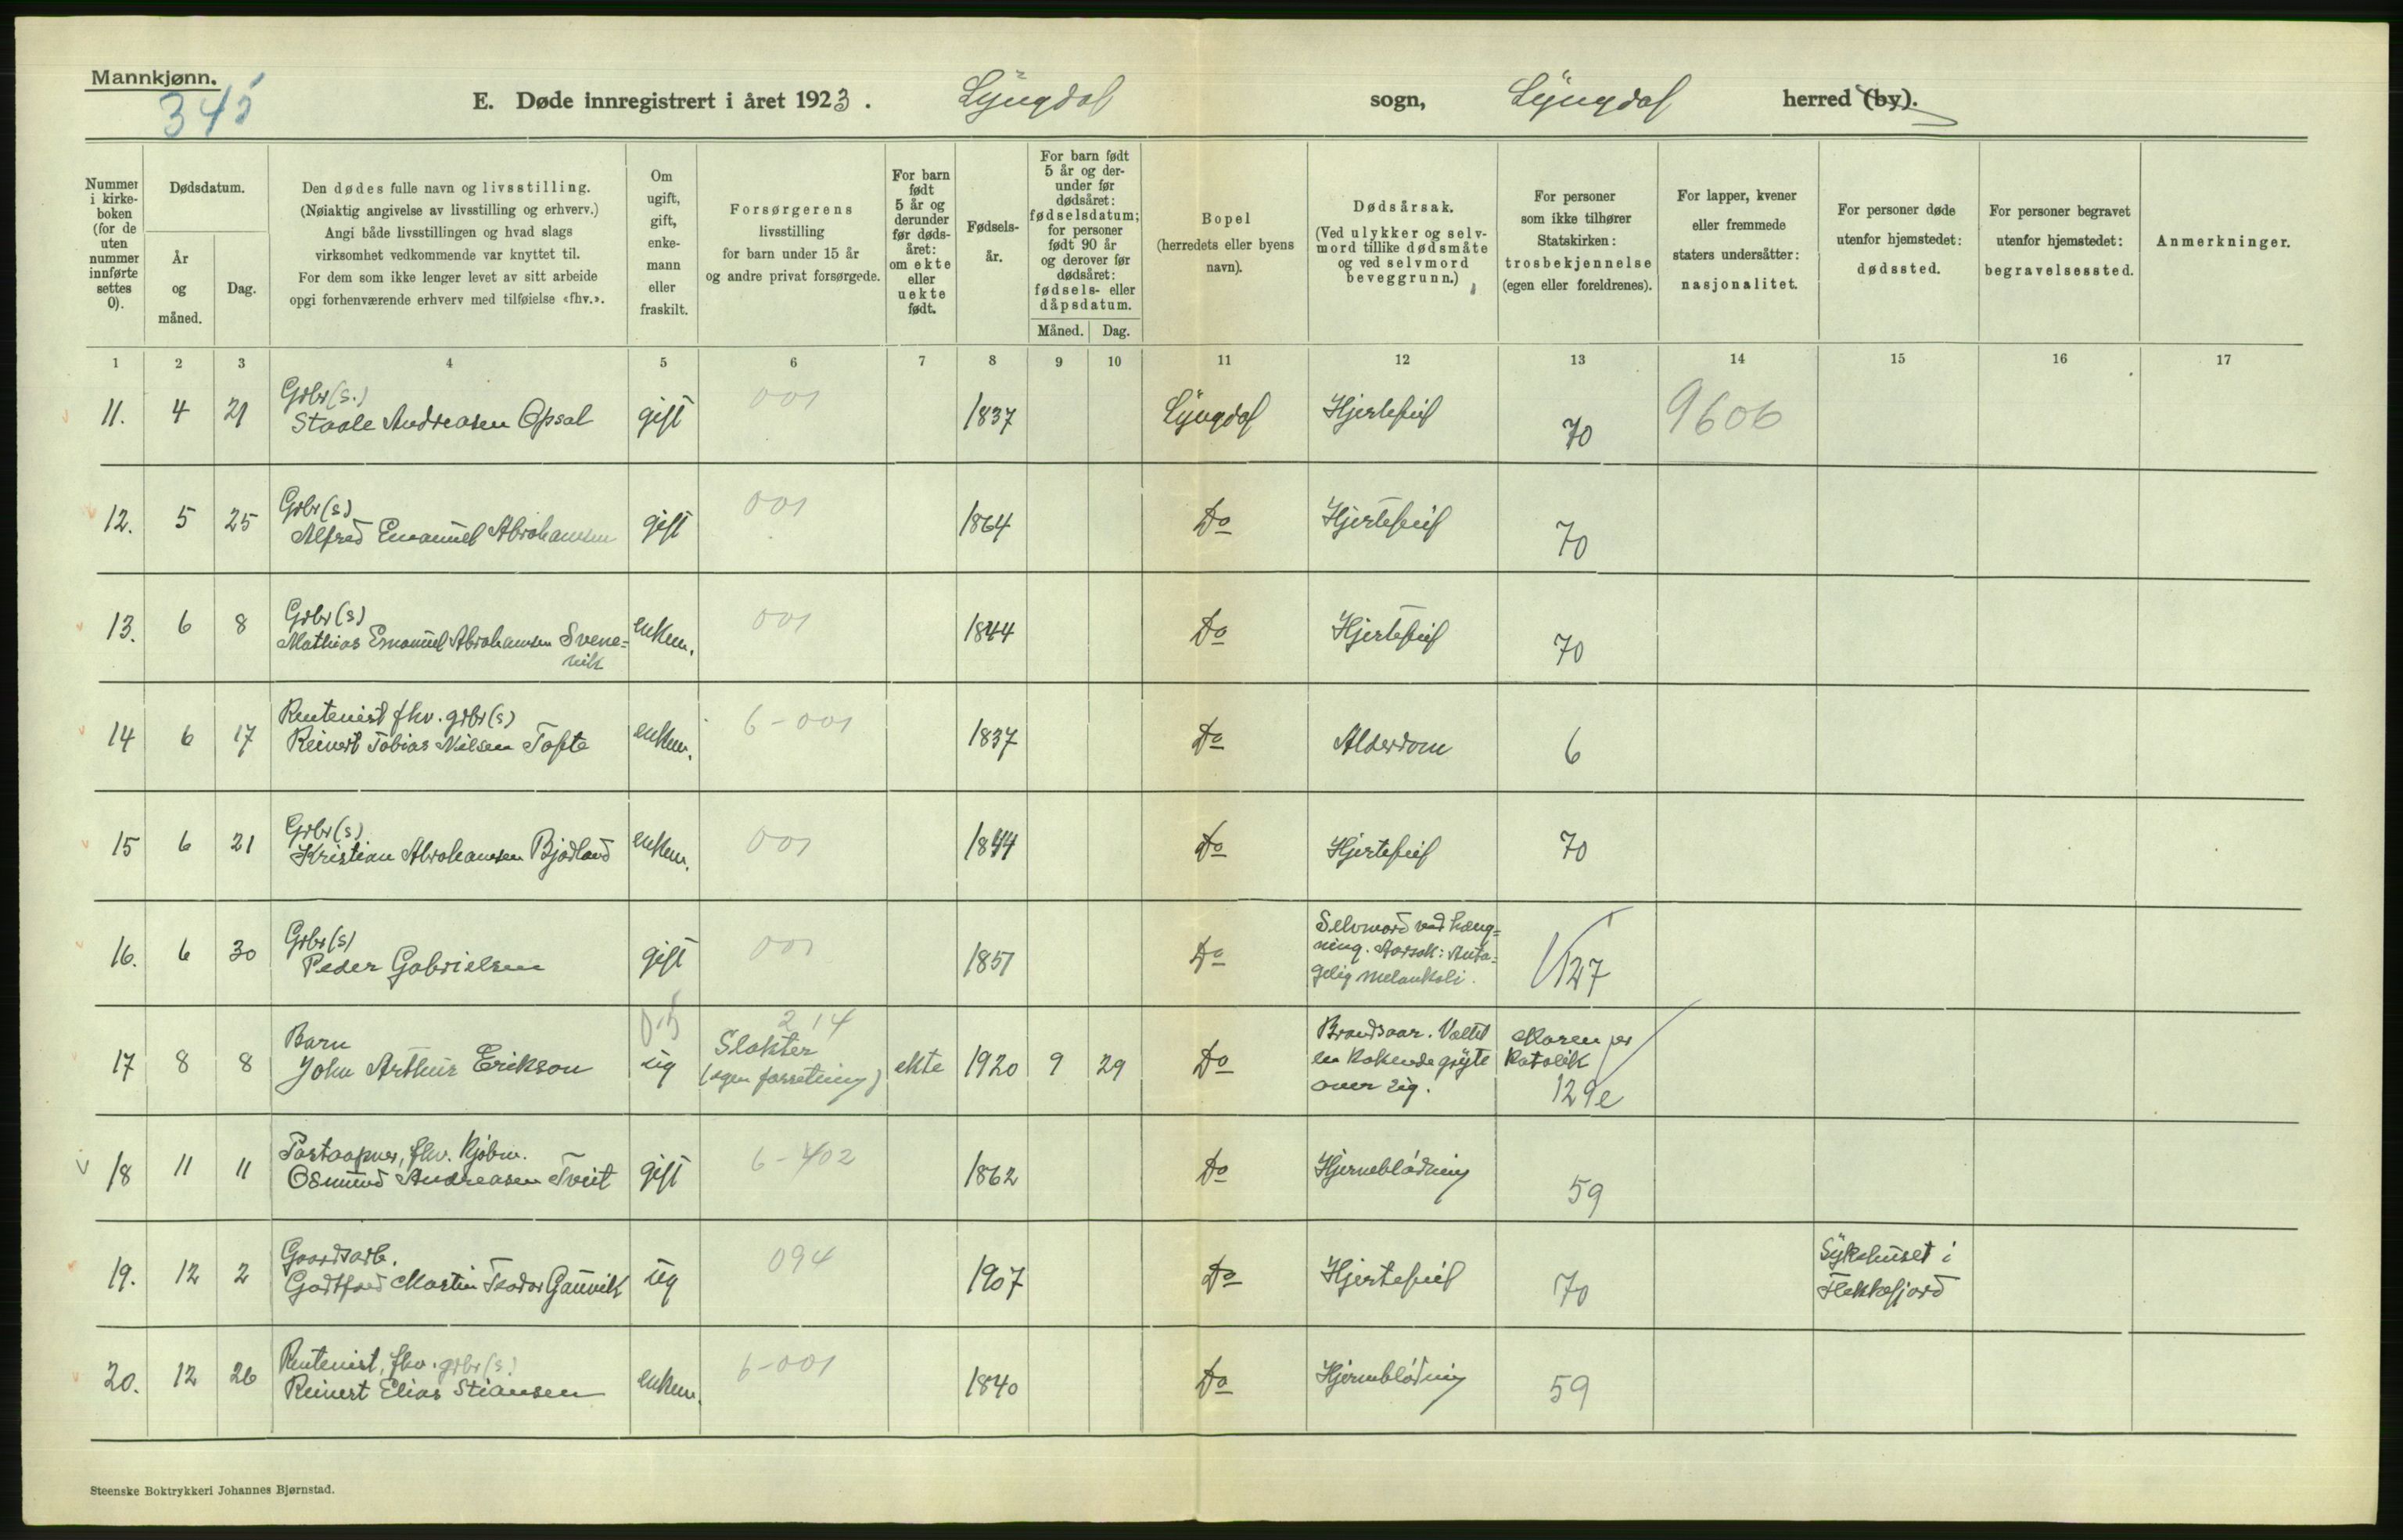 Mannkjønn.
345
E. Døde innregistrert i året 1923. Lyngdal sogn, Lyngdal herred (by).
Nummer i kirke-boken (for de uten nummer innførte settes 0).
Dødsdatum.
År og måned.
Dag.
Den dødes fulle navn og livsstilling.
(Nøiaktig angivelse av livsstilling og erhverv.)
Angi både livsstillingen og hvad slags
virksomhet vedkommende var knyttet til.
For dem som ikke lenger levet av sitt arbeide
opgi forhenværende erhverv med tilføielse «fhv.».
Om ugift, gift, enke-mann eller fraskilt.
Forsørgerens
livsstilling
for barn under 15 år
og andre privat forsørgede.
For barn født 5 år og derunder før døds-året: om ekte eller uekte født.
Fødsels-år.
For barn født 5 år og der-under før dødsåret: fødselsdatum; for personer født 90 år og derover før dødsåret: fødsels- eller dåpsdatum.
Måned. Dag.
Bopel
(herredets eller byens
navn).
Dødsårsak.
(Ved ulykker og selv-
mord tillike dødsmåte
og ved selvmord
beveggrunn.)
For personer
som ikke tilhører
Statskirken:
trosbekjennelse
(egen eller foreldrenes).
For lapper, kvener
eller fremmede
staters undersåtter:
nasjonalitet.
For personer døde
utenfor hjemstedet:
dødssted.
For personer begravet
utenfor hjemstedet:
begravelsessted.
Anmerkninger.
1 2 3 4 5 6 7 8 9 10 11 12 13 14 15 16 17
Grbr (s.)
11. 4 21 Staale Andreasen Opsal gift 001 1837 Lyngdal Hjertefeil 70 9606
Grbr (s)
12. 5 25 Alfred Emanuel Abrahamsen gift 001 1864 Do Hjertefeil 70
Grbr (s)
13. 6 8 Mathias Emanuel Abrahamsen Svene=
vik enkem. 001 1844 Do Hjertefeil 70
Rentenist fhv. grbr (s)
14 6 17 Reinert Tobias Nilsen Tofte enkem. 6-001 1837 Do Alderdom 6
Grbr (s)
15 6 21 Kristian Abrahamsen Bjødland enkem. 001 1844 Do Hjertefeil 70
Grbr (s)
16. 6 30 Peder Gabrielsen gift 001 1851 Do Selvmord ved hæng=
ning. Aarsak: Anta=
gelig melankoli. 127
Barn 0-5 214
17 8 8 John Arthur Erikson ug Slakter
(egen forretning) ekte 1920 9 29 Do Brandsaar. Væltet
en kokende gryte
over sig. Moren er
Katolik
129e
Postaapner, fhv. kjøbm.
18 11 11 Osmund Andreasen Tveit gift 6-402 1862 Do Hjerneblødning 59
Gaardsarb.
19. 12 2 Godtfred Martin Teodor Gauvik ug 094 1907 Do Hjertefeil 70 Sykehuset i
Flekkefjord
Rentenist, fhv. grbr (s)
20. 12 26 Reinert Elias Stiansen enkem. 6-001 1840 Do Hjerneblødning 59
Steenske Boktrykkeri Johannes Bjørnstad.